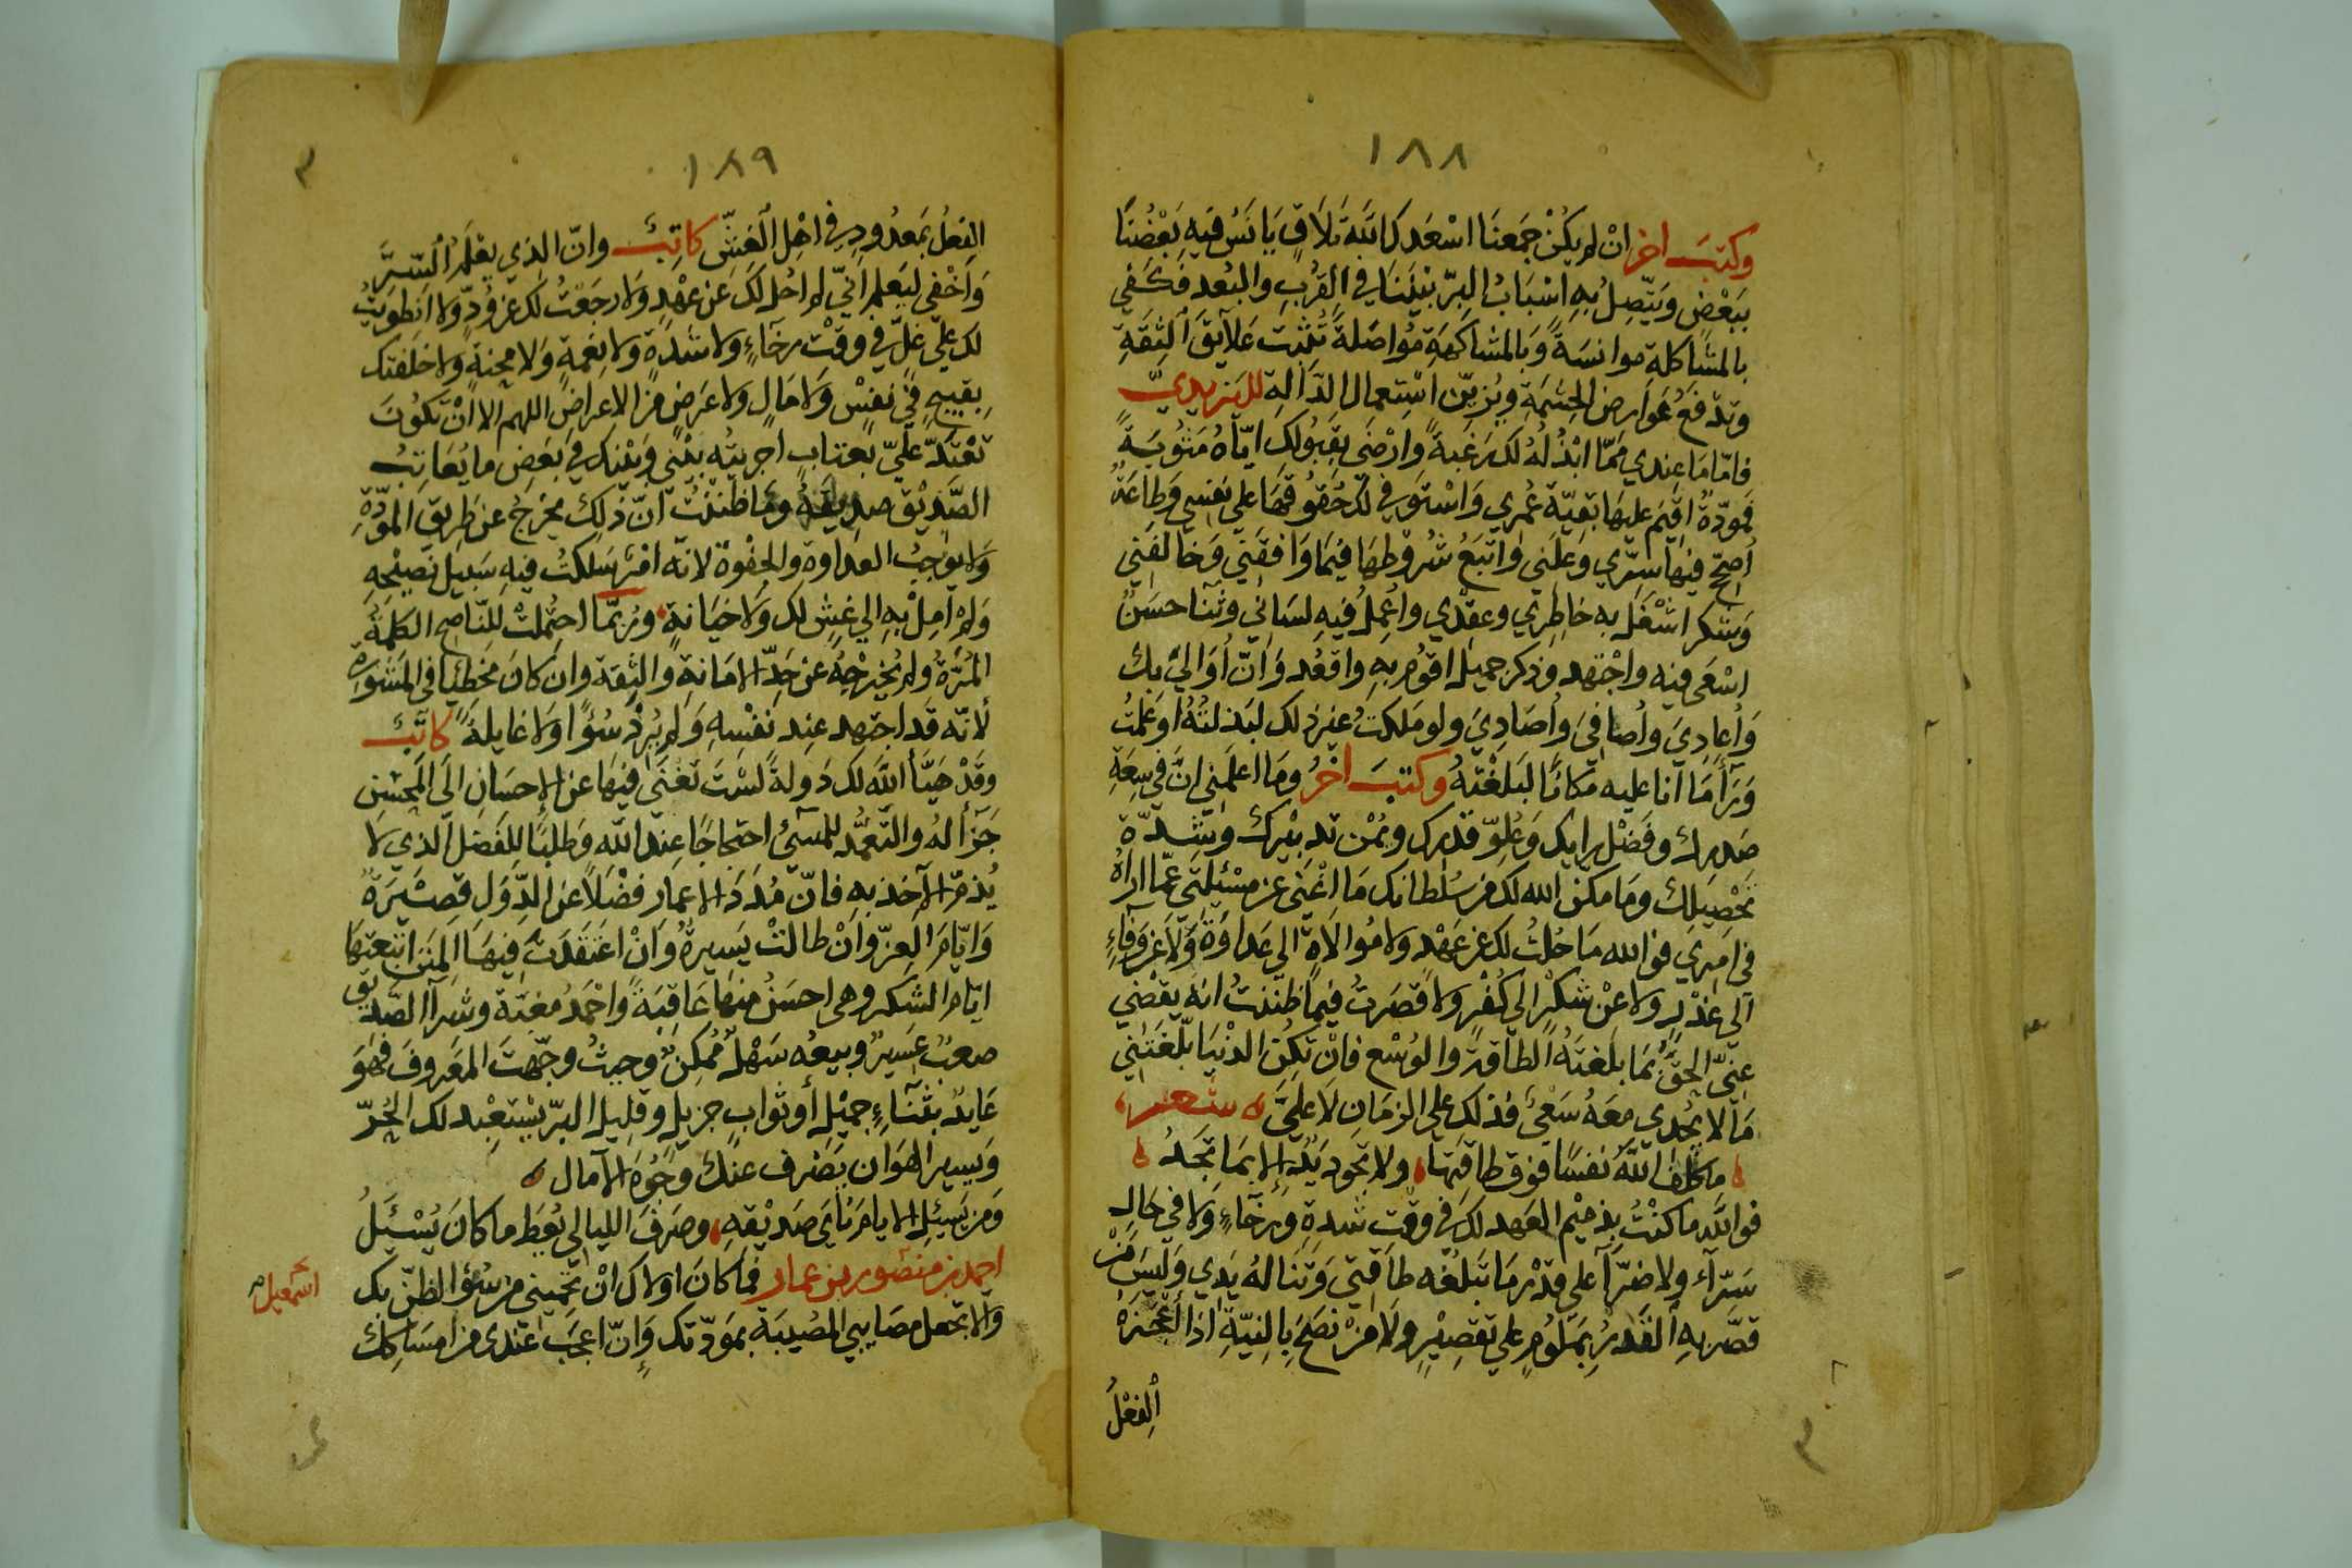 ١٨٨
وكتب اخر ان لم يكن جمعنا اسعدك الله تلاق يانس فيه بعضنا
ببعض ويتصل به اسباب البر بيننا في القرب والبعد فكفي
بالمشاكلة موانسة وبالمشاكهة مواصلة تثبت علايق الثقة
وتدفع عوارض الحشمة ويزين استعمال الدالة لليزيدي
فاما ما عندي مما ابذله لك رغبة وارضى بقبولك اياه مثوبة
فمودة اقيم عليها بقية عمري واستوفي لك حقوقها على نفسي وطاعة
اصحح فيها سري وعلني واتبع شروطها فيما وافقني وخالفني
وشكر اشغل به خاطري وعقدي واعمل فيه لساني وثنا حسن
اسعى فيه واجتهد وذكر جميل اقوم به واقعد وان اوالي بك
واعادي واصافي واصادي ولو ملكت غير ذلك لبذلته او علمت
ورأ ما انا عليه مكانا لبلغته وكتب اخر وما اعلمني ان في سعة
صدرك وفضل رايك وعلو قدرك ويمن تدبيرك وشدة
تحصيلك وما مكن الله لك من سلطانك ما اغنى عن مسئلتي عما اراه
في امري فو الله ما حلت لك عن عهد ولا موالاة الي عداوة ولا عن وفاء
الي غدر ولا عن شكر الي كفر ولا قصرت فيما ظننت انه يقضي
عني الحق بما بلغته الطاقة والوسع فان تكن الدنيا بلغتني
ما لا يجدي معه سعي فذلك علي الزمان لا علي شعر
ما كلف الله نفسا فوق طاقتها ولا تجود يد الا بما تجد
فو الله ما كنت بذميم العهد لك في وقت شدة ورخاء ولا في حال
سراء ولا ضرا علي قدر ما تبلغه طاقتي وتناله يدي وليس من
قصر به القدر بملوم علي تقصير ولا من نصح بالنية اذا اعجزه
الفعل
١٨٩
الفعل بمعدود في اهل الغش كاتب وان الذي يعلم السر
واخفي ليعلم اني لم احل لك عن عهد ولا رجعت لك عن ود ولا انطويت
لك علي غل في وقت رخاء ولا شدة ولا نعمة ولا محنة ولا خلفتك
بقبيح في نفس ولا مال ولا عرض من الاعراض اللهم الا ان تكون
تعتد علي بعتاب اجريته بيني وبينك في بعض ما يعاتب
الصديق صديقه وما ظننت ان ذلك يخرج عن طريق المودة
ولا يوجب العداوة والجفوة لانه امر سلكت فيه سبيل نصيحه
ولم امل به الي غش لك ولا خيانة وربما احتملت للناصح الكلمة
المرة ولم يخرجه عن حد الامانة والثقة وان كان مخطيا في المشورة
لانه قد اجتهد عند نفسه ولم يرد سؤا ولا غايلة كاتب
وقد هيأ الله لك دولة لست تغنى فيها عن الاحسان الي المحسن
جزأ له والتغمد للمسئ احتجاجا عند الله وطلبا للفضل الذي لا
يذم الآخذ به فان مدد الاعمار فضلا عن الدول قصيرة
وايام العز وان طالت يسيرة وان اعتقدت فيها المنن اتبعتها
ايام الشكر وهي احسن منها عاقبة واحمد مغبة وشرآ الصديق
صعب عسير وبيعه سهل ممكن وحيث وجهت المعروف فهو
عايد بثناء جميل أو ثواب جزيل وقليل البر يستعبد لك الحر
ويسير الهوان يصرف عنك وجوه الآمال
ومن يسئل الايام ناي صديقه وصرف الليالي يعط ما كان يسئل
احمد بن منصور بن عمار فما كان اولاك ان تحميني من سؤ الظن بك
والا تجعل مصايبي المصيبة بمودتك وان اعجب عندي من امساكك
اسمعيل